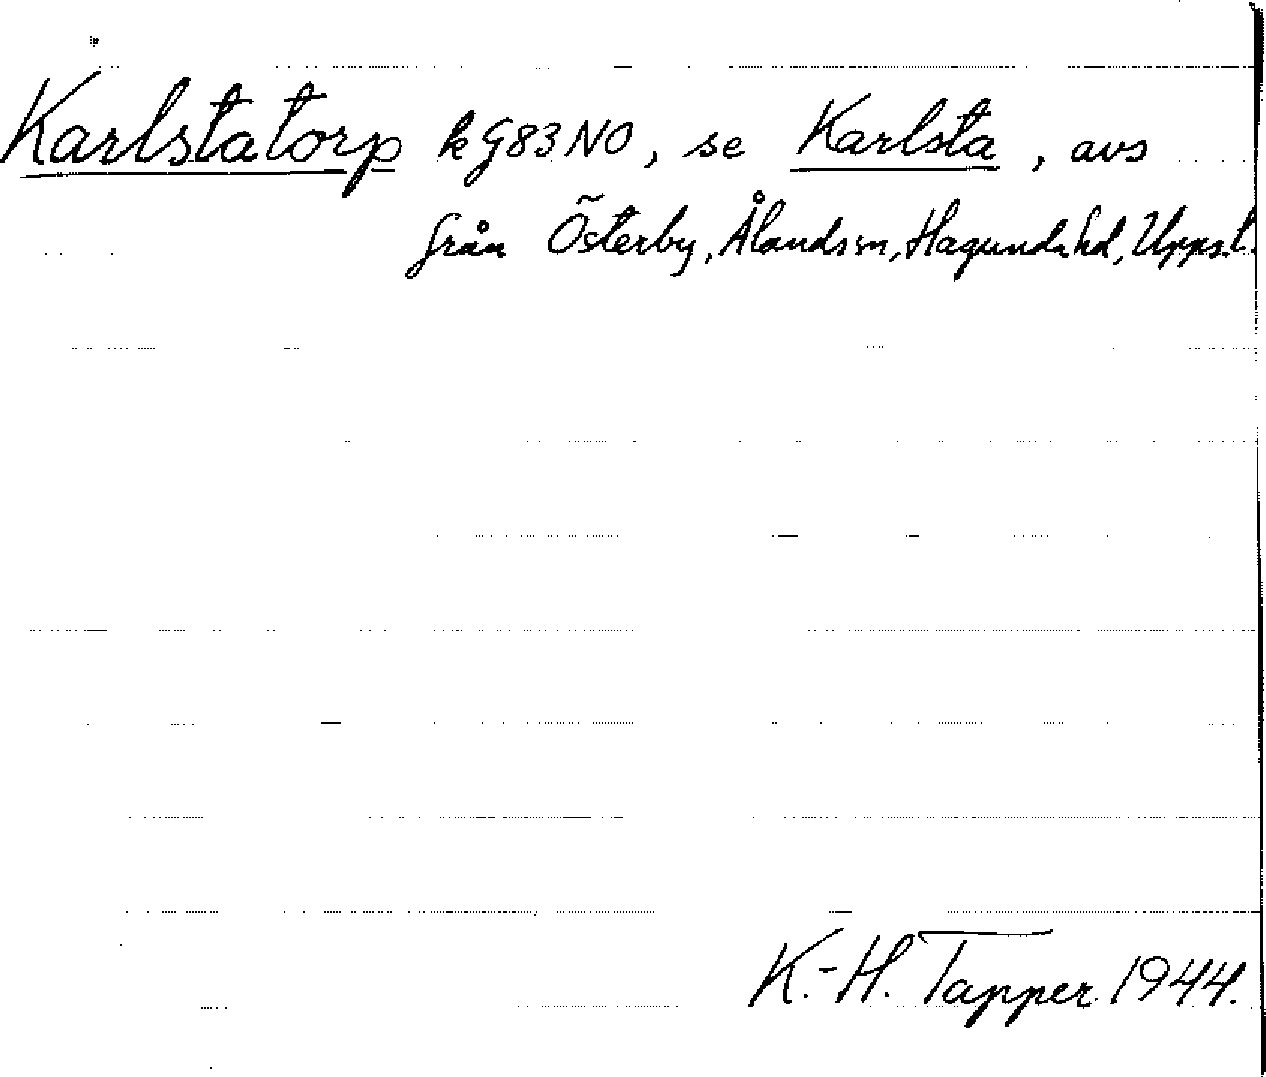 Karlstatorp k G83NO, se Karlsta, avs
från Österby, Ålands sn, Hagunda hd, Upps. l.
K.-H. Tapper 1944.